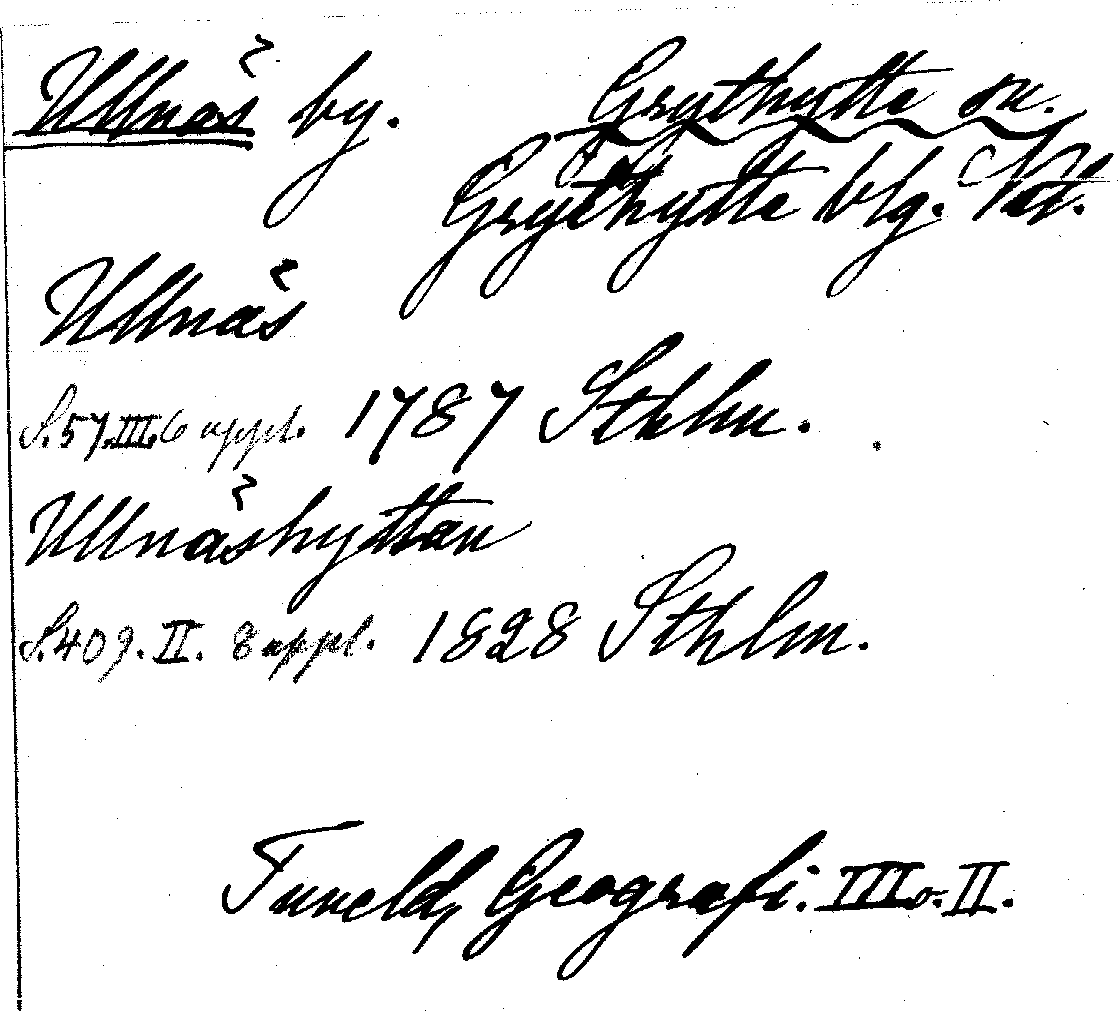 Ullnäs by. Grythytte sn.
Grythytte blg. Vstm.
Ullnäs
S.57.III.6 uppl. 1787 Sthlm.
Ullnäshyttan
S.409. II. 8 uppl. 1828 Sthlm.
Tuneld, Geografi. III o. II.